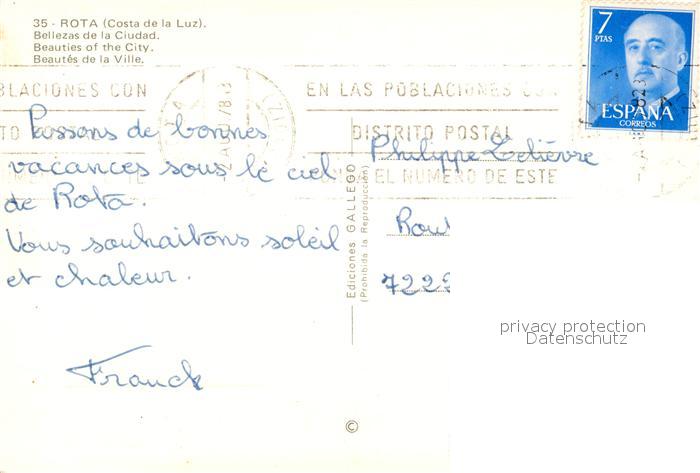 35 - ROTA (Costa de la Luz).
Bellezas de la Ciudad.
Beauties of the City.
Beautés de la Ville.
7
PTAS
ESPAÑA
CORREOS
BLACIONES CON
EN LAS POBLACIONES CON
DISTRITO POSTAL
EL NUMERO DE ESTE
Passons de bonnes
vacances sous le ciel
de Rota.
Vous souhaitons soleil
et chaleur.
Franck
Ediciones GALLEGO
(Prohibida la Reproducción)
Philippe Lelièvre
Rou
7229
privacy protection
Datenschutz
©